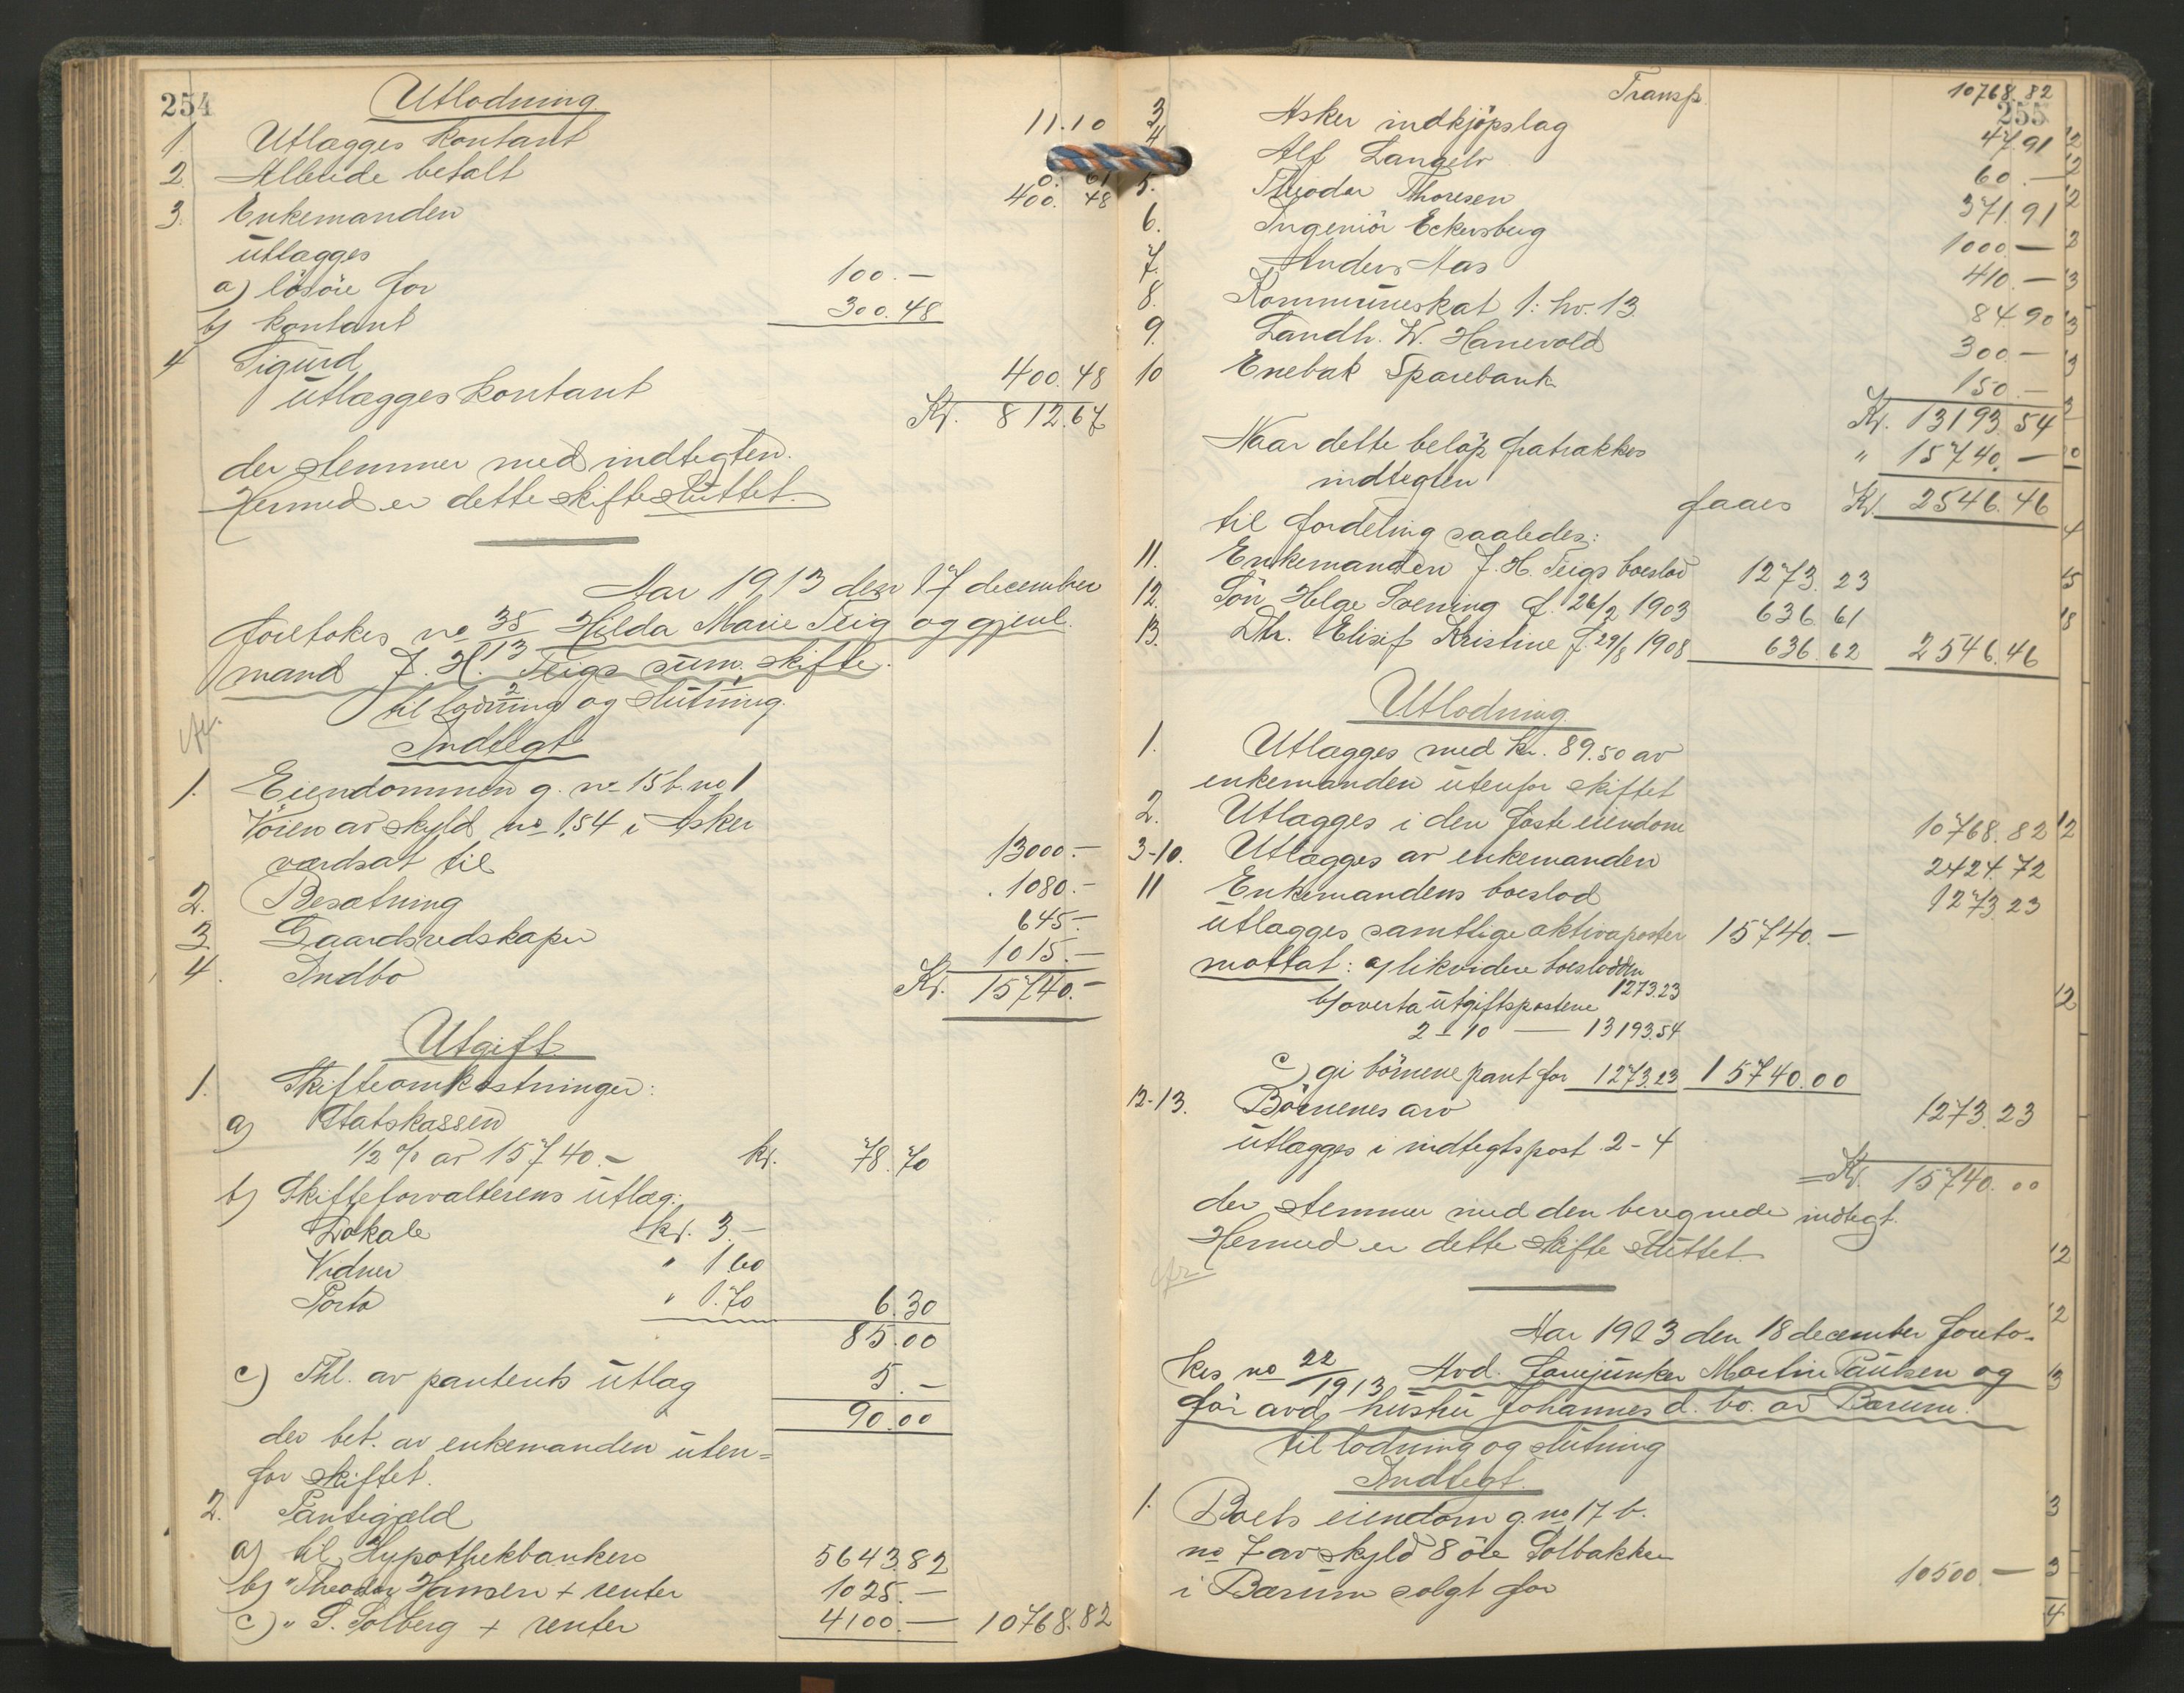 254
Utlodning
1. Utlægges kontant 11.10
2. Allerede betalt 0.61
3. Enkemanden 400.48
utlægges
a) lösöre for 100.—
b) kontant 300.48
4 Sigurd
utlægges kontant 400.48
Kr. 812.67
der stemmer med indtegten.
Hermed er dette skifte sluttet.
Aar 1913 den 17 december
foretokes no 35/13 Hilda Marie Teig og gjenl.
mand J. H. Teigs sum. skifte
til lodning og slutning.
Indtegt
1. Eiendommen g. no 15 b. no 1
Vöien av skyld no 1,54 i Asker
værdsat til 13000.—
2. Besætning 1080.—
3. Gaardsredskaper 645.—
4. Indbo 1015.—
Kr. 15740.—
Utgift
1. Skifteomkostninger:
a) Statskassen
1/2 % av 15740.— kr. 78.70
b) Skifteforvalterens utlæg:
Lokale kr. 3.—
Vidner " 1.60
Porto " 1.70 6.30
85.00
c) Thl. av panteats utlæg 5.—
90.00
der bet. av enkemanden uten=
for skiftet.
2. Pantegjæld
a) til Hypothekbanken 5643.82
b) " Theodor Hansen + renter 1025.—
c) " S. Solberg + renter 4100.— 10768.82
255
Transp. 10768.82
3 Asker indkjöpslag 47.91
4 Alf Langeb 60.—
5. Theodor Thoresen 371.91
6. Ingeniör Eckersberg 1000.—
7. Anders Aas 410.—
8. Kommuneskat 1. hv. 13 84.90
9. Landh. W. Hanevold 300.—
10 Enebak Sparebank 150.—
Kr. 13193.54
Naar dette belöp fratrækkes
indtegten " 15740.—
faaes Kr. 2546.46
til fordeling saaledes:
11. Enkemanden J. H. Teigs boeslod 1273.23
12. Sön Helge Soening f. 26/2 1903 636.61
13. Dtr. Elisif Kristine f. 29/8 1908 636.62 2546.46
Utlodning
1. Utlægges med kr. 89.50 av
enkemanden utenfor skiftet
2. Utlægges i den faste eiendom 10768.82
3-10. Utlægges av enkemanden 2424.72
11 Enkemandens boeslod 1273.23
utlægges samtlige aktivaposter 15740.—
mottat: a) likvidere boeslodden
1273.23
b) overta utgiftspostene
2 – 10 — 13193.54
c) gi börnene pant for 1273.23 15740.00
12-13. Börnenes arv 1273.23
utlægges i indtegtspost 2-4
Kr. 15740.00
der stemmer med den beregnede indtegt.
Hermed er dette skifte sluttet.
Aar 1913 den 18 december foreto-
kes no 22/1913 Avd. fanejunker Martin Paulsen og
för avd. hustru Johannes d. bo av Bærum.
til lodning og slutning
Indtegt.
1. Boets eiendom g. no 17 b.
no 7 av skyld 8 öre Solbakken
i Bærum solgt for 10500.—